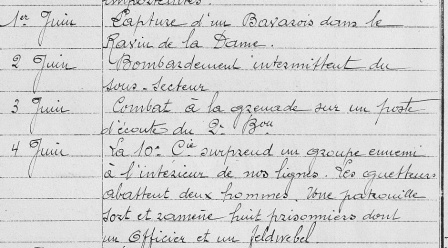 importantes.
1er Juin Capture d'un Bavarois dans le
Ravin de la Dame.
2 Juin Bombardement intermittent du
sous-secteur
3 Juin Combat à la grenade sur un poste
d'écoute du 2e Bon
4 Juin La 10e Cie surprend un groupe ennemi
à l'intérieur de nos lignes. Les guetteurs
abattent deux hommes. Une patrouille
sort et ramène huit prisonniers dont
un Officier et un feldwebel